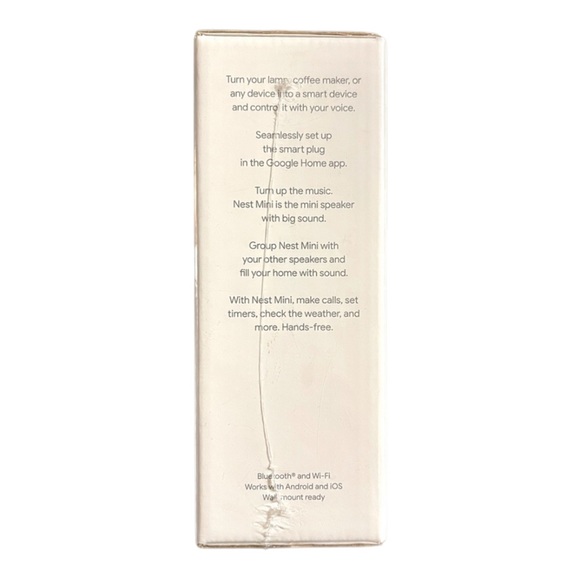 Turn your lamp, coffee maker, or
any device into a smart device
and control it with your voice.
Seamlessly set up
the smart plug
in the Google Home app.
Turn up the music.
Nest Mini is the mini speaker
with big sound.
Group Nest Mini with
your other speakers and
fill your home with sound.
With Nest Mini, make calls, set
timers, check the weather, and
more. Hands-free.
Bluetooth® and Wi-Fi
Works with Android and iOS
Wall mount ready